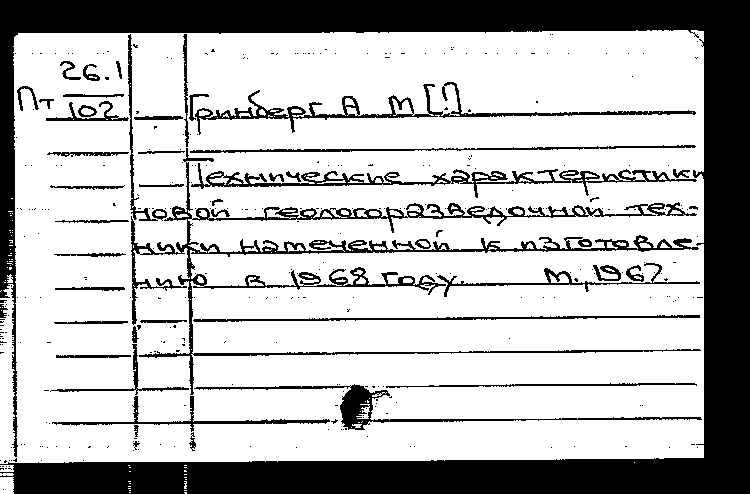 26.1
Пт 102 Гринберг, А М [!].
Технические характеристики
новой геологоразведочной тех-
ники, намеченной к изготовле-
нию в 1968 году. М., 1967.